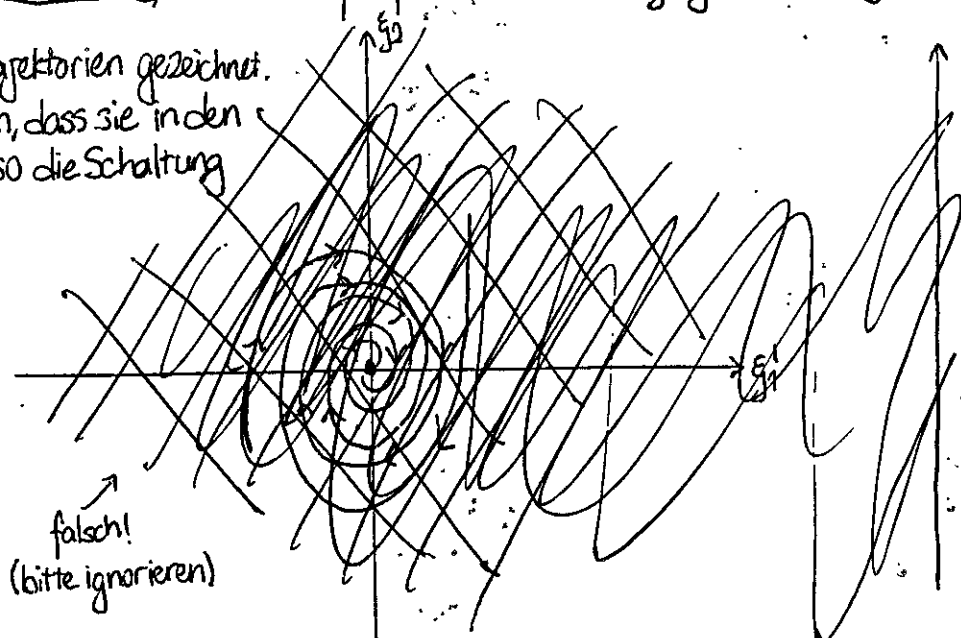 jektorien gezeichnet.
n, dass sie in den
so die Schaltung
ξ2
ξ1
falsch!
(bitte ignorieren)